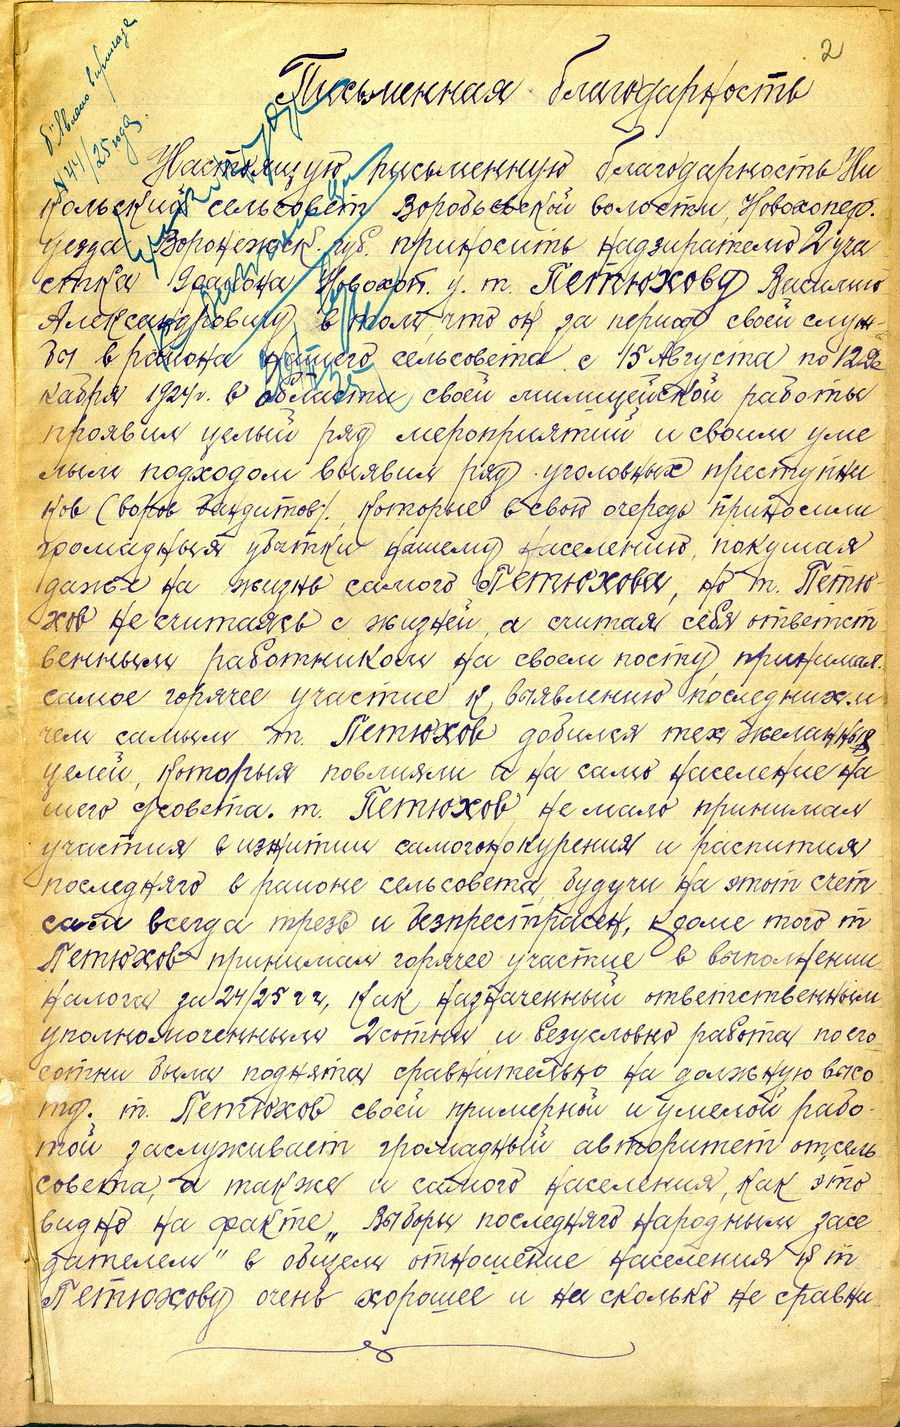 2
Об'явлено в приказе
№ 44/25 года.
Письменная благодарность
Настоящую письменную благодарность Ни
кольский сельсовет Воробьевской волости, Новохопер.
уезда Воронежск. губ. приносить надзирателю 2 уча
стка района Новохоп. у. т. Петюхову Василию
Александровичу в том, что он за период своей служ-
бы в района нашего сельсовета с 15 Августа по 12 Де
кабря 1924 г. в области своей милицейской работы
проявил целый ряд мероприятий и своим уме
лым подходом выявил ряд уголовных преступни
ков (воров бандитов), которые в свою очередь приносили
громадныя убытки нашему населению, покушая
даже на жизнь самого Петюхова, но т. Петю-
хов не считаясь с жизней, а считая себя ответст
венным работником на своем посту, принимал
самое горячее участие к выявлению последних и
чем самым т. Петюхов добился тех желанных
целей, которыя повлияли и на само население на
шего с/совета. т. Петюхов не мало принимал
участия в изжитии самогонокурения и распития
последняго в районе сельсовета, будучи на этот счет
сам всегда трезв и безпрестрасен, кроме того т
Петюхов принимал горячее участие в выполнении
налога за 24/25 г г, как назначенный ответственным
уполномоченным 2 сотни и безусловно работа по его
сотни была поднята сравнительно на должную высо
ту. т. Петюхов своей примерной и умелой рабо-
той заслуживает громадный авторитет от сель
совета, а также и самого населения, как это
видно на факте „Выборы последняго народным засе
дателем" в общем отношение населения к т
Петюхову очень хорошее и на сколько не сравни